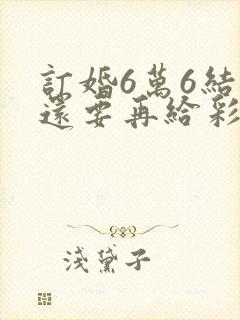 訂婚6萬6結
還要再給彩
淺黛子